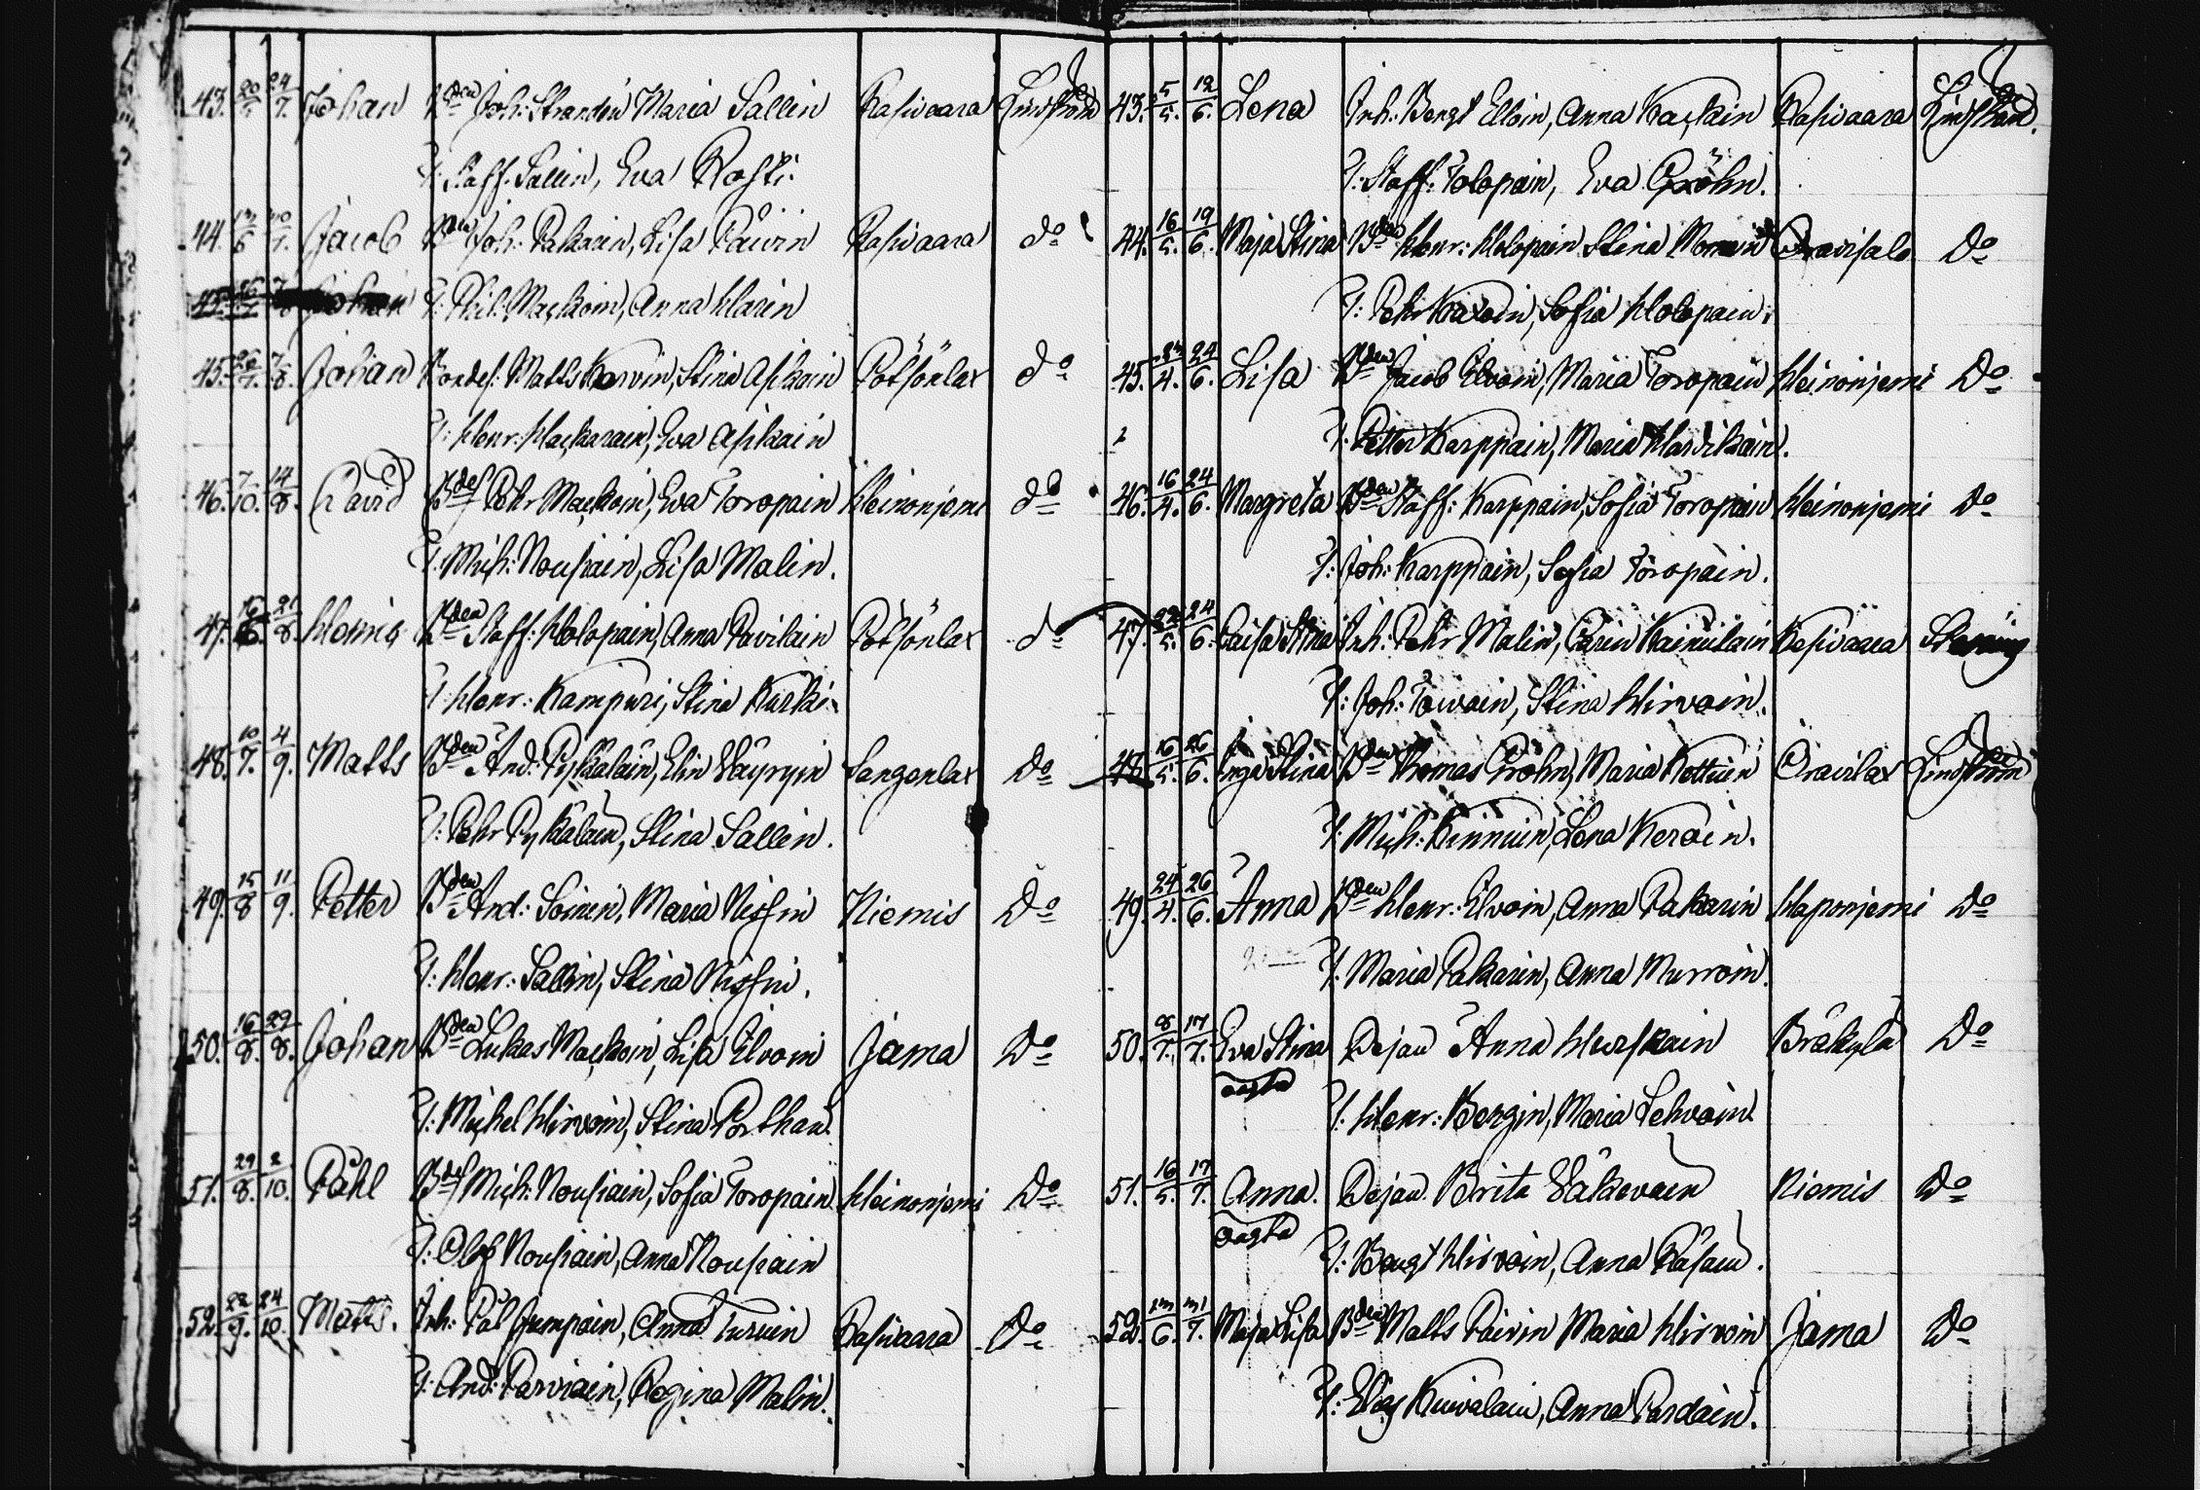 43. 20/5. 24/7. Johan Bden Joh: Strandén Maria Sallin Rasivaara Lindström
F: Staff. Sallin, Eva Koski.
44. 13/6 10/7. Jacob Bden Joh: Pakarin, Lisa Päivin Rasivaara do
F: Phil: Mackoin, Anna Harin
45. 26/7. 7/8. Johan Bondes: Matts Karvin, Stina Asikain Potsönlax do
F: Henr: Hackarain, Eva Asikain
46. 7/10. 14/8. David Bdes Pehr Mackoin, Eva Toropain Heinonjemi do
F: Mich: Nousiain, Lisa Malin.
47. 16/6. 21/8. Henric Bden Staff: Holopain, Anna Pavilain Potsönlax do
F: Henr: Kampuri, Stina Karki.
48. 10/7. 4/9. Matts Bden And: Pyykälain, Elin Väyryin Sangenlax Do
F: Pehr Pyykälain, Stina Sallin.
49. 15/8 11/9. Petter Bden And: Soinin, Maria Nissin Niemis Do
F: Henr: Sallin, Stina Nissin.
50. 16/8. 29/8. Johan Bden Lukas Mackoin, Lisa Elvoin Jama Do
F: Michel Hirvoin, Stina Porthan.
51. 29/8. 2/10. Påhl Bdes Mich: Nousiain, Sofia Toropain Heinonjemi Do
F: Olof Nousiain, Anna Nousiain
52. 22/9. 24/10. Matts. Inh: Pål Jumpain, Anna Turuin Rasivaara Do
F: And: Parviain, Regina Malin.
43. 5/5. 12/6. Lena Inh: Bengt Elloin, Anna Kackin Rasivaara Lindström.
F: Staff: Tolopain, Eva Gröhn.
44. 16/5. 19/6. Maja Stina Bden Henr: Holopain Stina Oravisalo Do
F: Pehr Karoin, Sofia Holopain.
45. 27/4. 24/6. Lisa Bden Jacob Elvoin, Maria Toropain Heinonjemi Do
F: Petter Karppain, Maria Hardikain.
46. 16/4. 24/6. Margreta Bden Staff: Karppain, Sofia Toropain Heinonjemi Do
F: Joh: Karppain, Sofia Toropain.
47. 22/5. 24/6. Caisa Stina Inh: Pehr Malin, Carin Kainulain Rasivaara
F: Joh: Toivain, Stina Hirvoin.
48. 16/5. 26/6. Inga Stina Bden Thomas Gröhn, Maria Kettuin Oravilax Lindström
F: Mich: Kinnuin, Lena Keroin.
49. 24/4. 26/6. Anna Bden Henr: Elvoin, Anna Pakarin Haponjemi Do
F: Maria Pakarin, Anna Murroin.
50. 8/7. 17/7. Eva Stina Dejan Anna Hurskain Bräkylä Do
oäcta
F: Henr: Bergin, Maria Lehvoin.
51. 16/5. 17/7. Anna. Dejan Brita Väkevain Niemis Do
oäcta
F: Bengt Hirvoin, Anna Räsäin.
52. 13/6. 31/7. Maja Lisa Bden Matts Päivin Maria Hirvoin Jama Do
F: Elias Kuivalain, Anna Pardain.